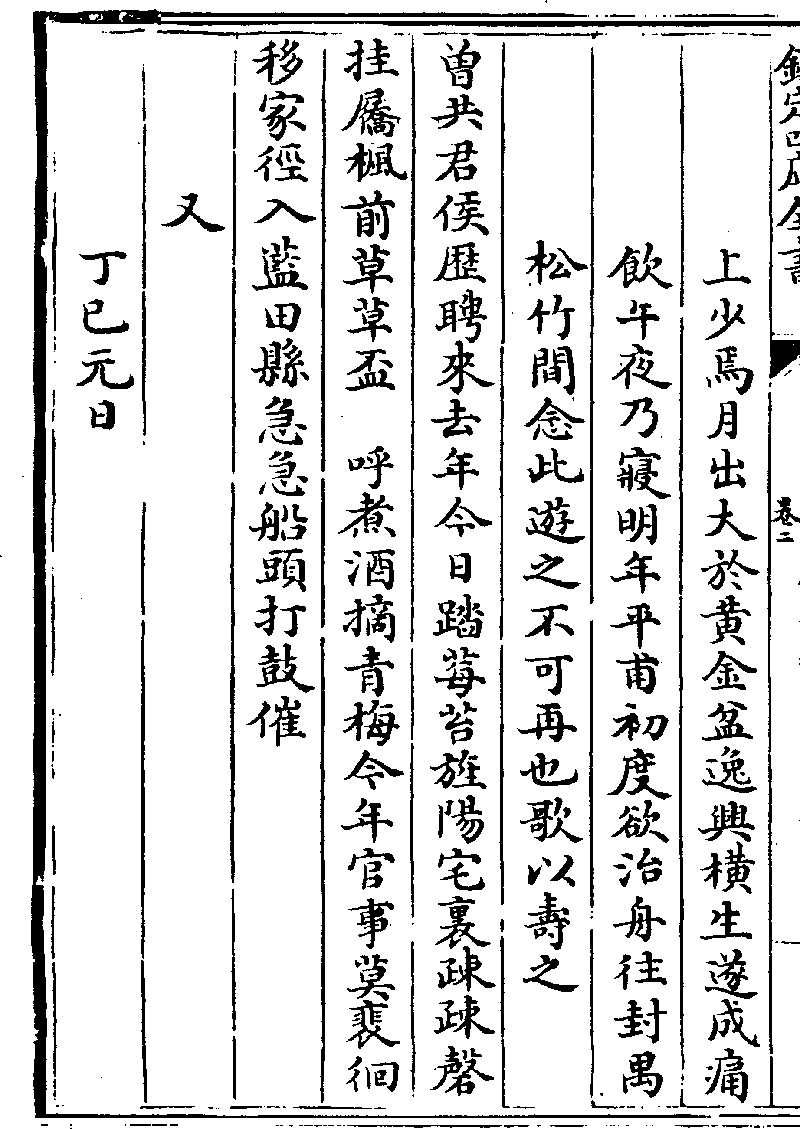 欽定四庫全書
卷二
上少焉月出大於黄金盆逸興横生遂成痛
飲午夜乃寢明年平甫初度欲治舟往封禺
松竹間念此遊之不可再也歌以壽之
曽共君侯歴聘來去年今日踏莓苔旌陽宅裏疎疎磬
挂屩楓前草草盃　呼煮酒摘青梅今年官事莫裵徊
移家徑入藍田縣急急船頭打鼓催
又
丁巳元日